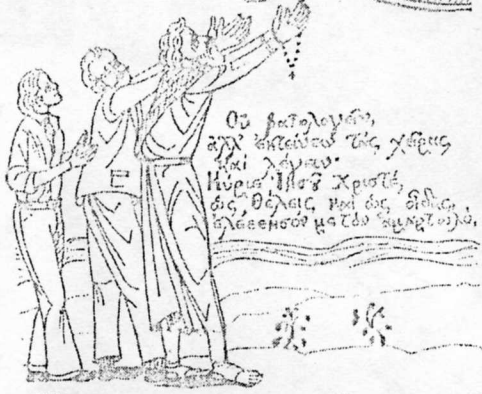 Οὐ βατολογεῖν,
ἀλλ' ἐκτείνειν τὰς χεῖρας
καὶ λέγειν·
Κύριε Ἰησοῦ Χριστέ,
ὡς θέλεις καὶ ὡς οἶδας,
ἐλέησόν με τὸν ἁμαρτωλό.